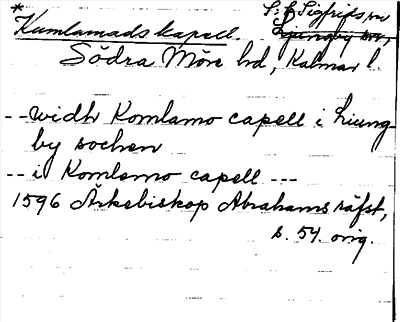 *
Kumlamads kapell. S:t Sigfrids sn
Ljungby sn,
Södra Möre hd, Kalmar l.
-- widh Komlamo capell i Liung-
by sochen
-- i Komlemo capell ---
1596 Ärkebiskop Abrahams räfst,
s. 54. orig.